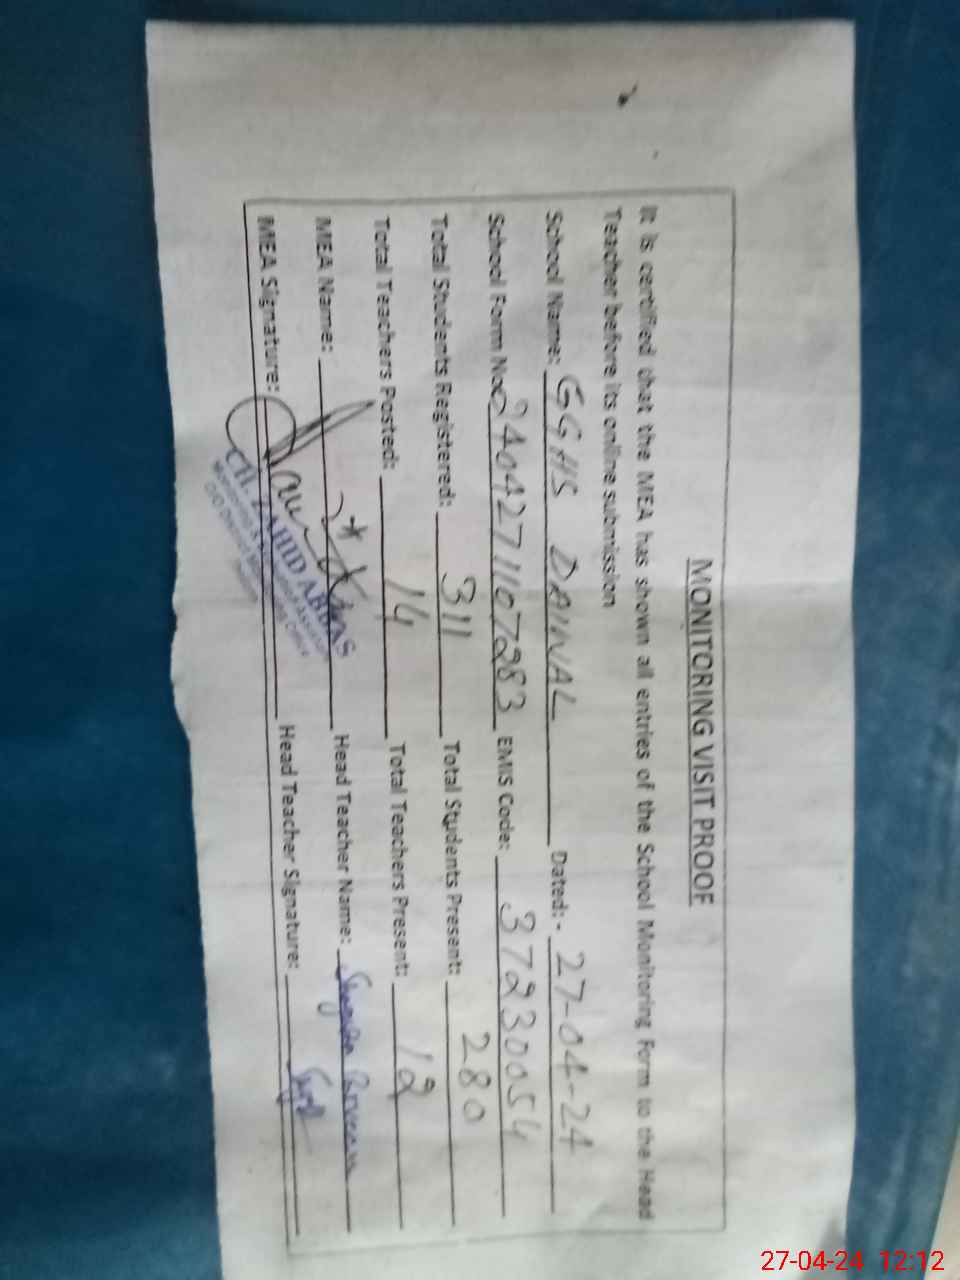 MONITORING VISIT PROOF
It is certified that the MEA has shown all entries of the School Monitoring Form to the Head
Teacher before its online submission
School Name: GGHS DAINAL Dated:- 27-04-24
School Form No: 2404271107283 EMIS Code: 37230054
Total Students Registered: 311 Total Students Present: 280
Total Teachers Posted: 14 Total Teachers Present: 12
MEA Name: Head Teacher Name: Parveen
MEA Signature: Head Teacher Signature:
CH. ZAHID ABBAS
Monitoring
27-04-24 12:12